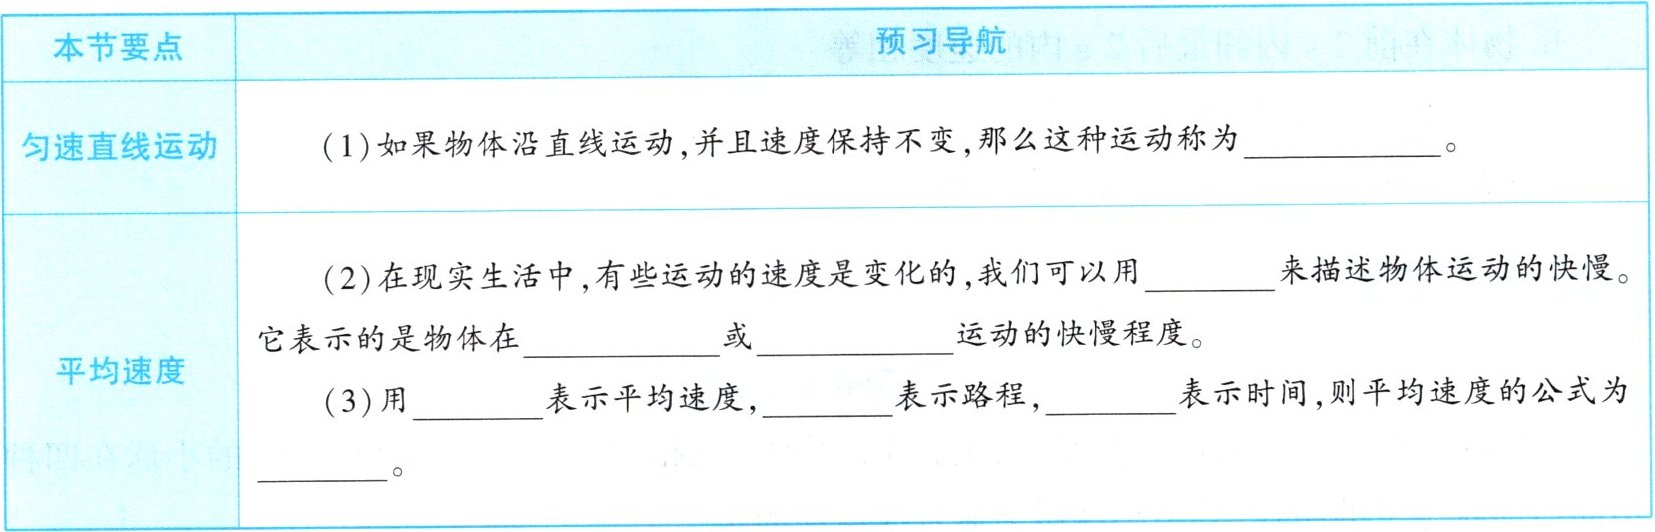 本节要点 预习导航
匀速直线运动 (1)如果物体沿直线运动,并且速度保持不变,那么这种运动称为____________。
(2)在现实生活中,有些运动的速度是变化的,我们可以用________来描述物体运动的快慢。
它表示的是物体在____________或____________运动的快慢程度。
平均速度
(3)用________表示平均速度,________表示路程,________表示时间,则平均速度的公式为
________。